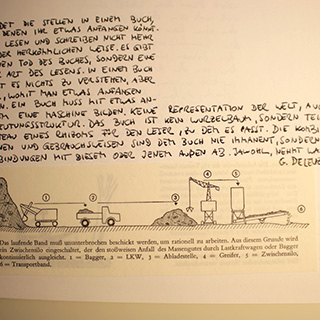 DET DIE STELLEN IN EINEM BUCH,
DENEN IHR ETWAS ANFANGEN KÖNNT.
LESEN UND SCHREIBEN NICHT MEHR
DER HERKÖMMLICHEN WEISE. ES GIBT
EN TOD DES BUCHES, SONDERN EINE
ART DES LESENS. IN EINEM BUCH
ES NICHTS ZU VERSTEHEN, ABER
, WOMIT MAN ETWAS ANFANGEN
N. EIN BUCH MUSS MIT ETWAS AN-
EM EINE MASCHINE BILDEN. KEINE REPRESENTATION DER WELT, AU
EUTUNGSSTRUKTUR. DAS BUCH IST KEIN WURZELBAUM, SONDERN TEIL
EINES RHIZOMS FÜR DEN LESER, ZU DEM ES PASST. DIE KOMBI
EN UND GEBRAUCHSWEISEN SIND DEM BUCH NIE IMMANENT, SONDERN
BINDUNGEN MIT DIESEM ODER JENEM AUSSEN AB. JAWOHL, NEHMT WA
G. DELEUZ
1 2 3 4 5 6
Das laufende Band muß ununterbrochen beschickt werden, um rationell zu arbeiten. Aus diesem Grunde wird
ein Zwischensilo eingeschaltet, der den stoßweisen Anfall des Massengutes durch Lastkraftwagen oder Bagger
kontinuierlich ausgleicht. 1 = Bagger, 2 = LKW, 3 = Abladestelle, 4 = Greifer, 5 = Zwischensilo,
6 = Transportband.